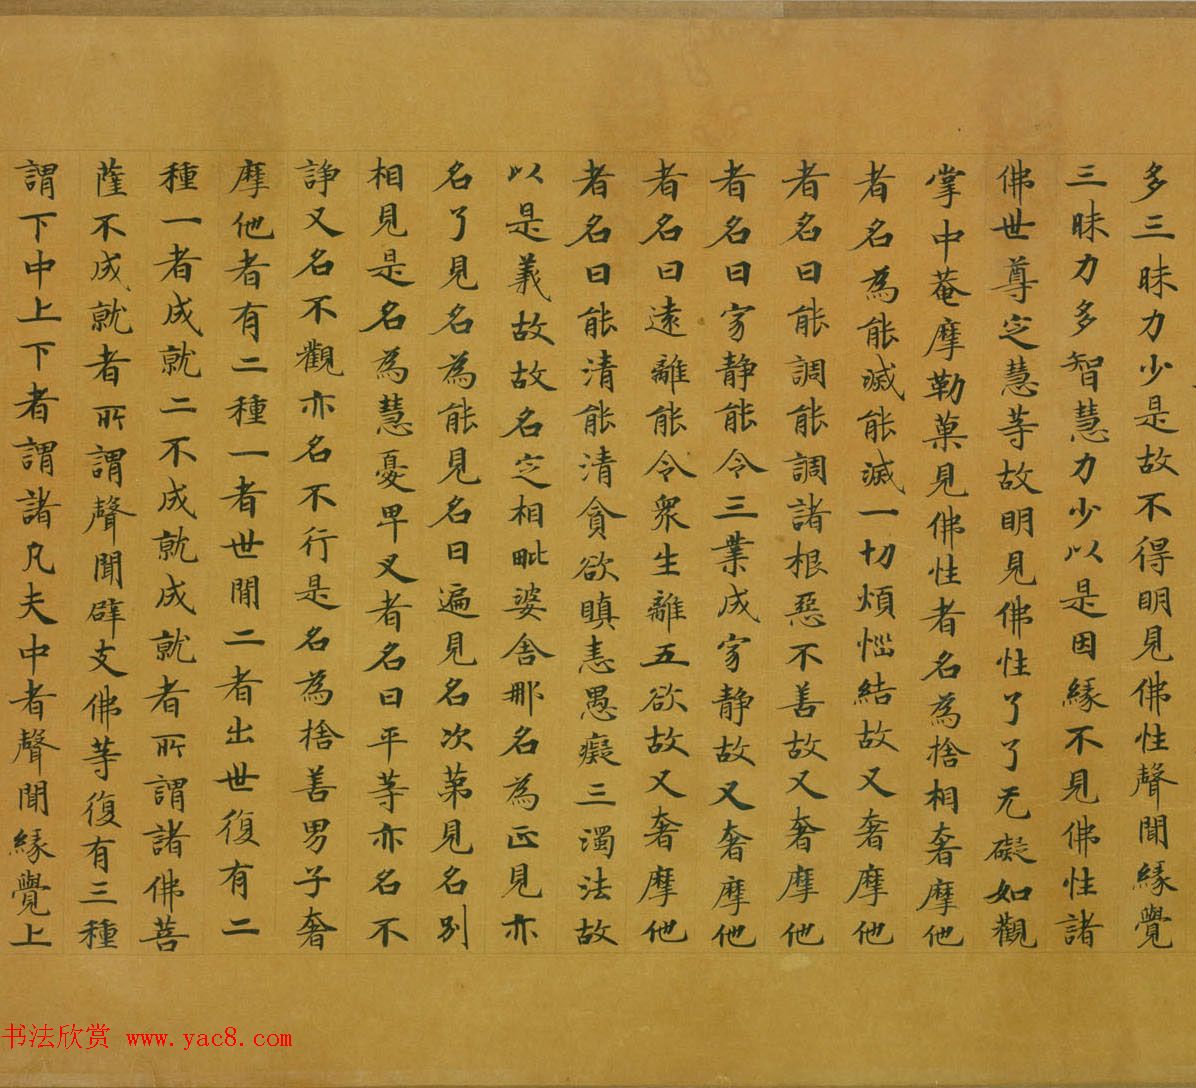 多三昧力少是故不得明見佛性聲聞緣覺
三昧力多智慧力少以是因緣不見佛性諸
佛世尊定慧等故明見佛性了了无礙如觀
掌中菴摩勒菓見佛性者名為捨相奢摩他
者名為能滅能滅一切煩惱結故又奢摩他
者名曰能調能調諸根惡不善故又奢摩他
者名曰寂静能令三業成寂静故又奢摩他
者名曰遠離能令衆生離五欲故又奢摩他
者名曰能清能清貪欲瞋恚愚癡三濁法故
以是義故故名定相毗婆舍那名為正見亦
名了見名為能見名曰遍見名次第見名別
相見是名為慧憂卑叉者名曰平等亦名不
諍又名不觀亦名不行是名為捨善男子奢
摩他者有二種一者世間二者出世復有二
種一者成就二不成就成就者所謂諸佛菩
薩不成就者所謂聲聞辟支佛等復有三種
謂下中上下者謂諸凡夫中者聲聞緣覺上
书法欣赏 www.yac8.com